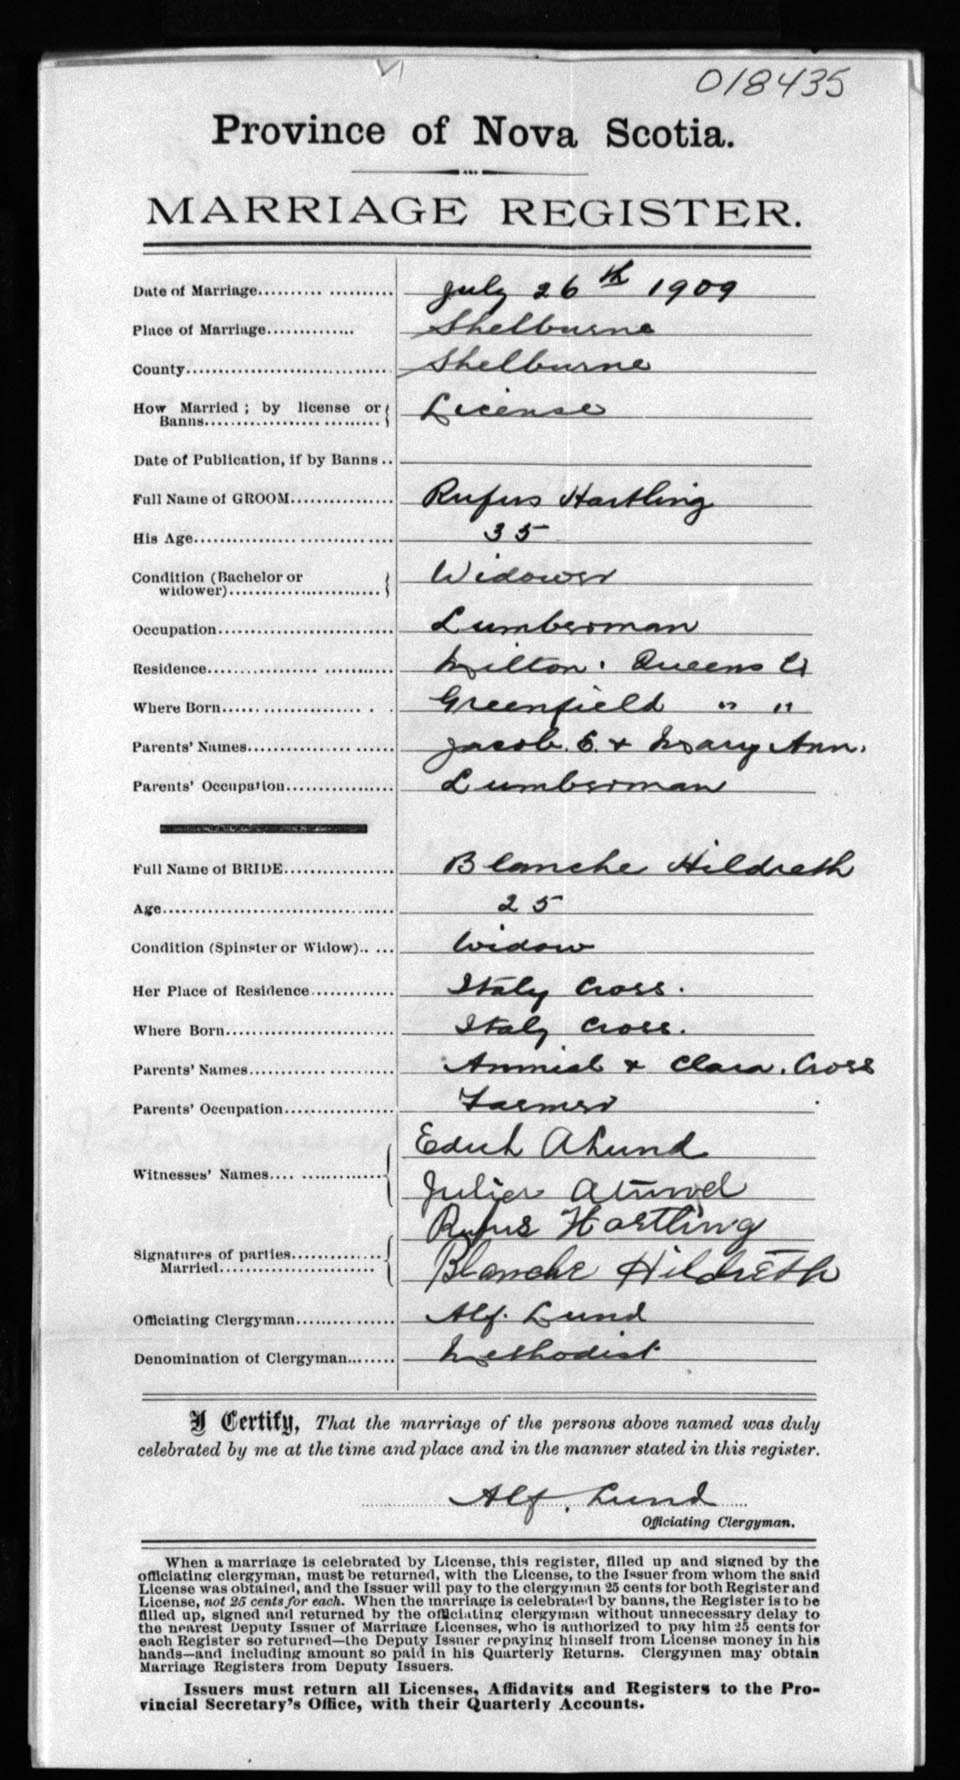 018435
Province of Nova Scotia.
MARRIAGE REGISTER.
Date of Marriage.......... July 26th 1909
Place of Marriage............. Shelburne
County.............................. Shelburne
How Married ; by license or
Banns.......................... License
Date of Publication, if by Banns ..
Full Name of GROOM............... Rufus Hartling
His Age............................. 35
Condition (Bachelor or
widower)........................ Widower
Occupation.......................... Lumberman
Residence........................... Milton. Queens Co
Where Born........................ Greenfield " "
Parents' Names..................... Jacob. E. & Mary Ann.
Parents' Occupation................ Lumberman
Full Name of BRIDE................. Blanche Hildreth
Age................................... 25
Condition (Spinster or Widow)..... Widow
Her Place of Residence............. Italy Cross.
Where Born......................... Italy Cross.
Parents' Names..................... & Clara. Cross
Parents' Occupation................ Farmer
Edith A Lund
Witnesses' Names...................
Julier Atwood
Rufus Hartling
Signatures of parties..............
Married........................ Blanche Hildreth
Officiating Clergyman............... Alf. Lund
Denomination of Clergyman........ Methodist
I Certify, That the marriage of the persons above named was duly
celebrated by me at the time and place and in the manner stated in this register.
Alf. Lund
Officiating Clergyman.
When a marriage is celebrated by License, this register, filled up and signed by the
officiating clergyman, must be returned, with the License, to the Issuer from whom the said
License was obtained, and the Issuer will pay to the clergyman 25 cents for both Register and
License, not 25 cents for each. When the marriage is celebrated by banns, the Register is to be
filled up, signed and returned by the officiating clergyman without unnecessary delay to
the nearest Deputy Issuer of Marriage Licenses, who is authorized to pay him 25 cents for
each Register so returned—the Deputy Issuer repaying himself from License money in his
hands—and including amount so paid in his Quarterly Returns. Clergymen may obtain
Marriage Registers from Deputy Issuers.
Issuers must return all Licenses, Affidavits and Registers to the Pro-
vincial Secretary's Office, with their Quarterly Accounts.